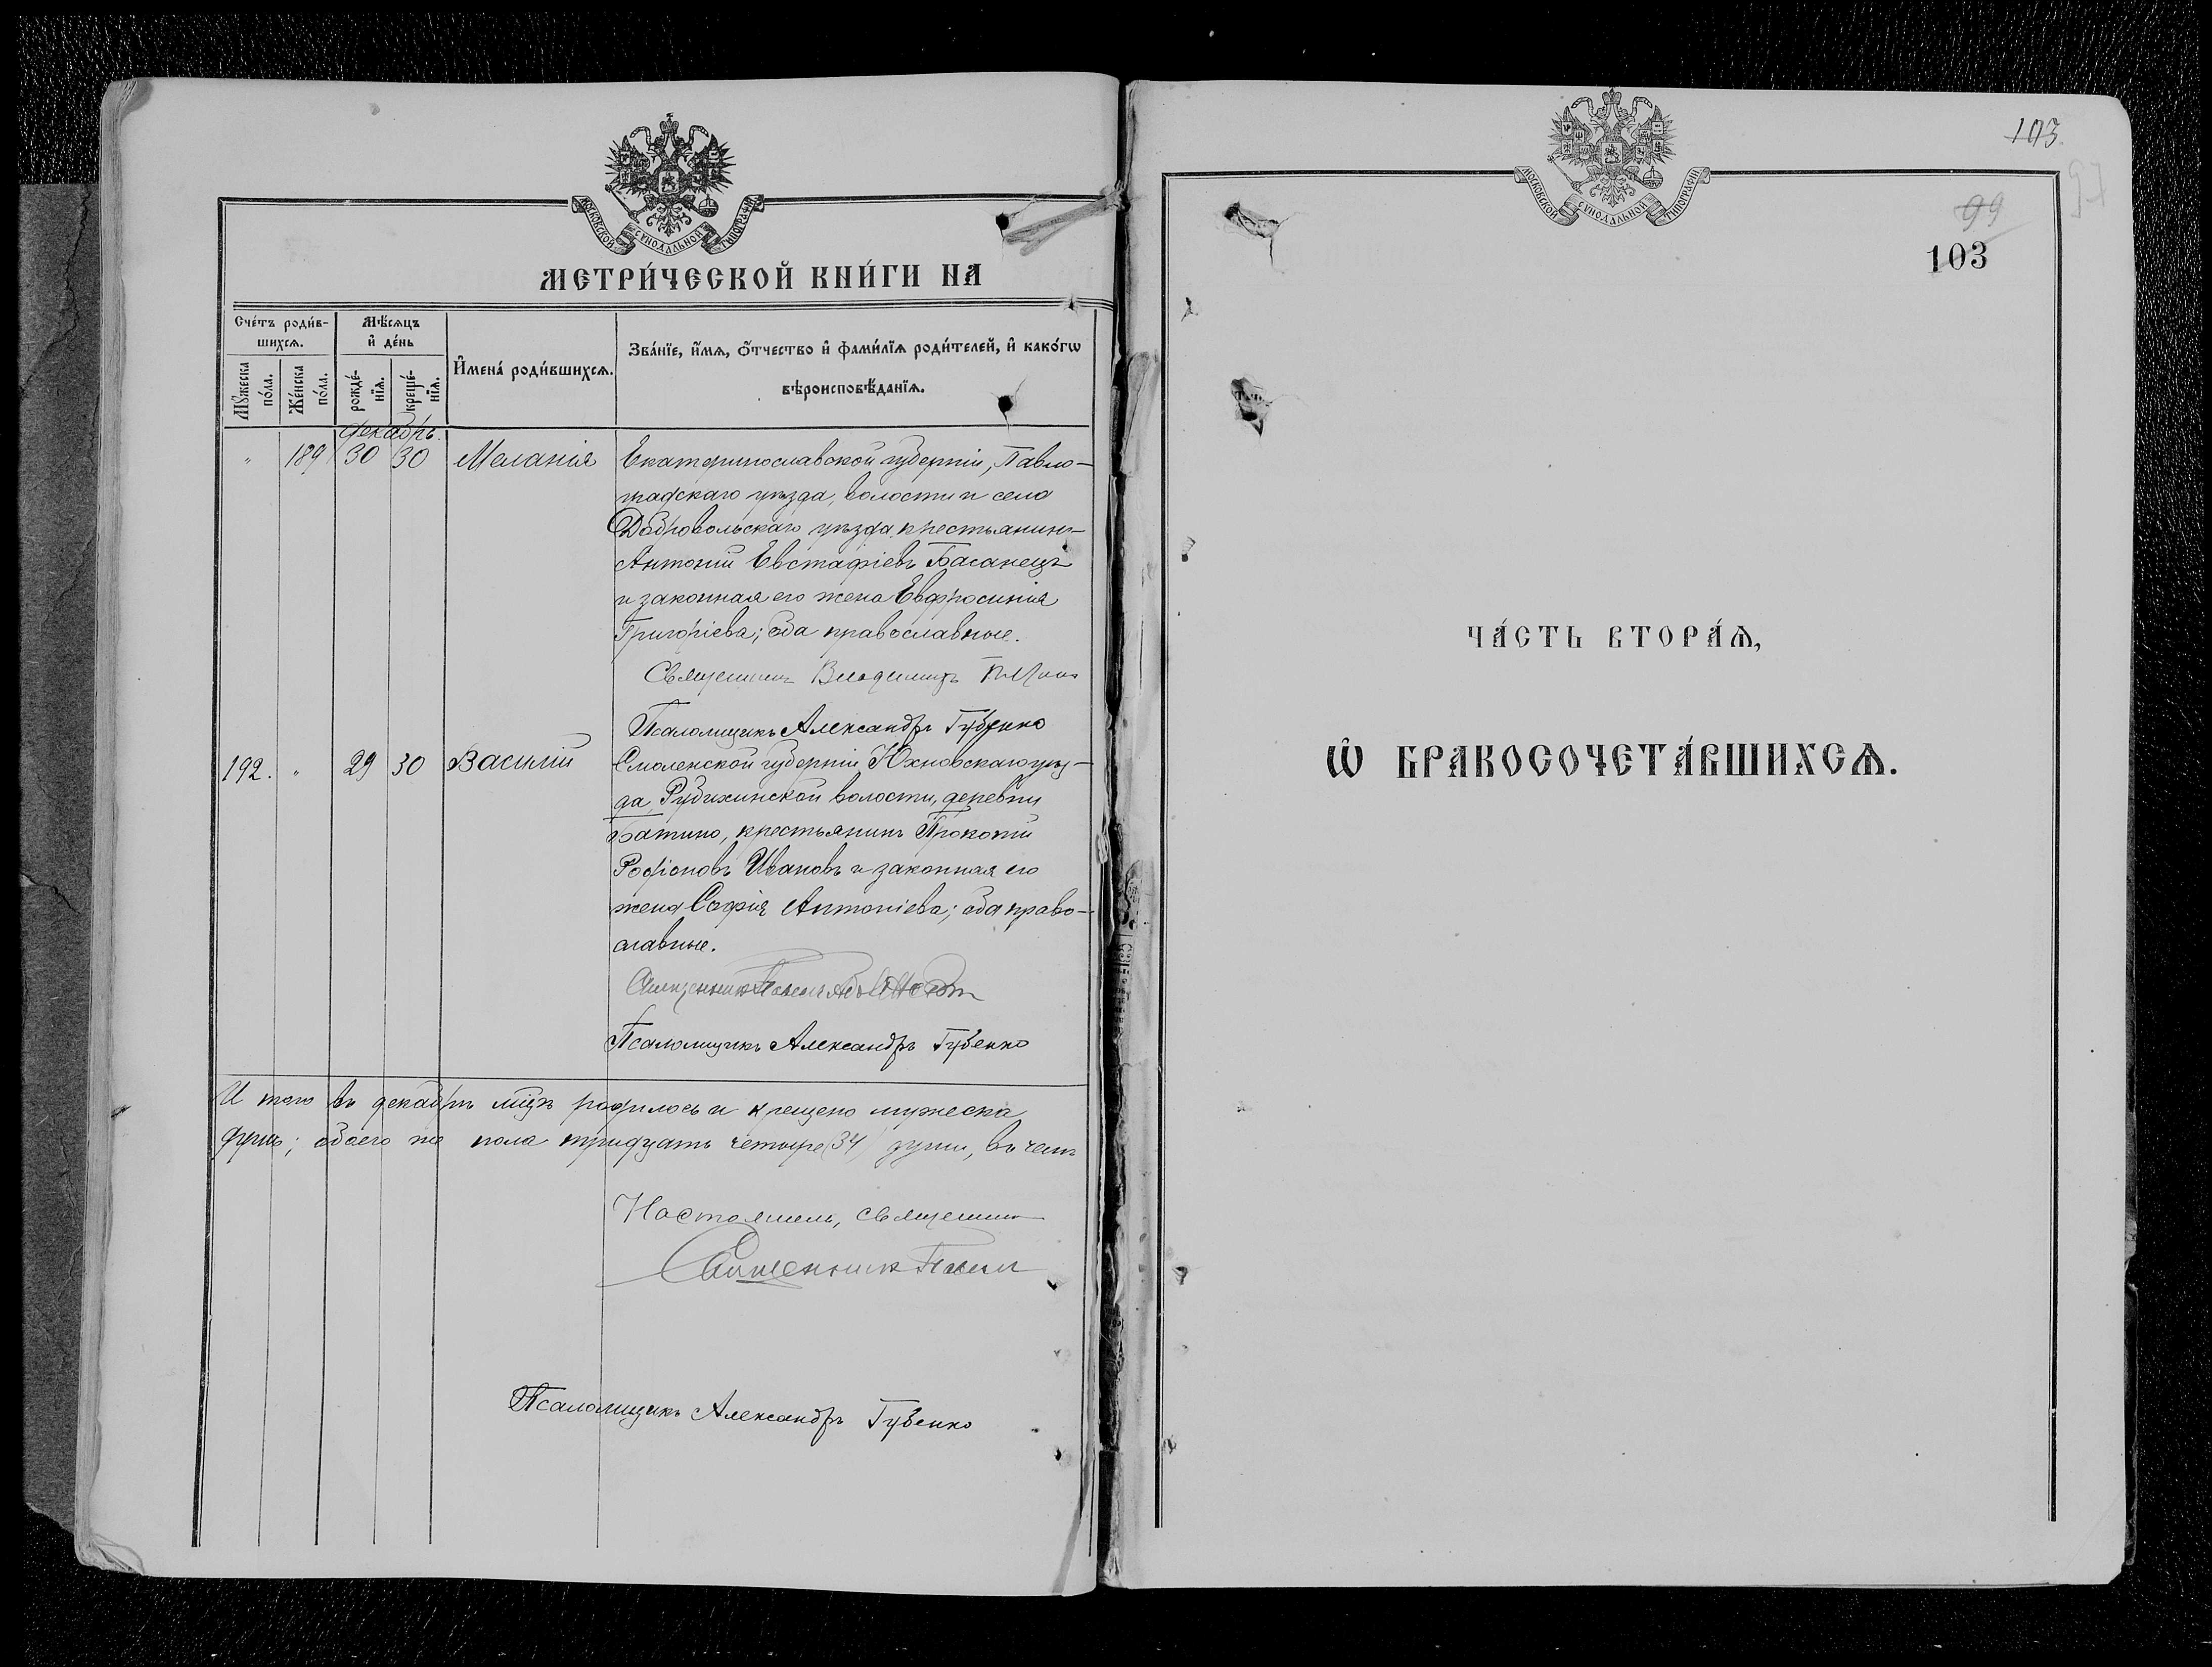 МОСКОВСКОЙ СѴНОДАЛЬНОЙ ТИПОГРАФІИ
МЕТРИ́ЧЕСКОЙ КНИ́ГИ НА
Сче́тъ роди́в-
шихсѧ.
Мѣ́сѧцъ
и҆ де́нь
И҆мена́ роди́вшихсѧ.
Зва́нїе, и҆́мѧ, ѻ҆́тчество и҆ фами́лїѧ роди́телей, и҆ како́гѡ
вѣроисповѣ́данїѧ.
Мꙋ́жеска
по́ла.
Же́нска
по́ла.
рожде́-
нїѧ.
креще́-
нїѧ.
Декабрь.
" 189 30 30 Меланія Екатеринославской губерніи, Павло-
градскаго уѣзда, волости и села
Добровольскаго уѣзда, крестьянинъ
Антоній Евстафіевъ Басанецъ
и законная его жена Евфросинія
Григоріева; оба православные.
Священникъ Владимиръ
Псаломщикъ Александръ Губенко
192. " 29 30 Василій Смоленской губерніи Юхновскаго уѣз-
да, Рубихинской волости, деревни
Батино, крестьянинъ Прокопій
Родіоновъ Ивановъ и законная его
жена Софія Антоніева; оба право-
славные.
Священникъ Павелъ
Псаломщикъ Александръ Губенко
И того въ декабрѣ мцѣ родилось и крещено мужеска
душъ; обоего же пола тридцать четыре (34) души, въ чемъ
Настоятель, священникъ
Священникъ Павелъ
Псаломщикъ Александръ Губенко
103
97
МОСКОВСКОЙ СѴНОДАЛЬНОЙ ТИПОГРАФІИ
99
103
ЧА́СТЬ ВТОРА́Ѧ,
Ѡ҆ БРАКОСОЧЕТА́ВШИХСѦ.